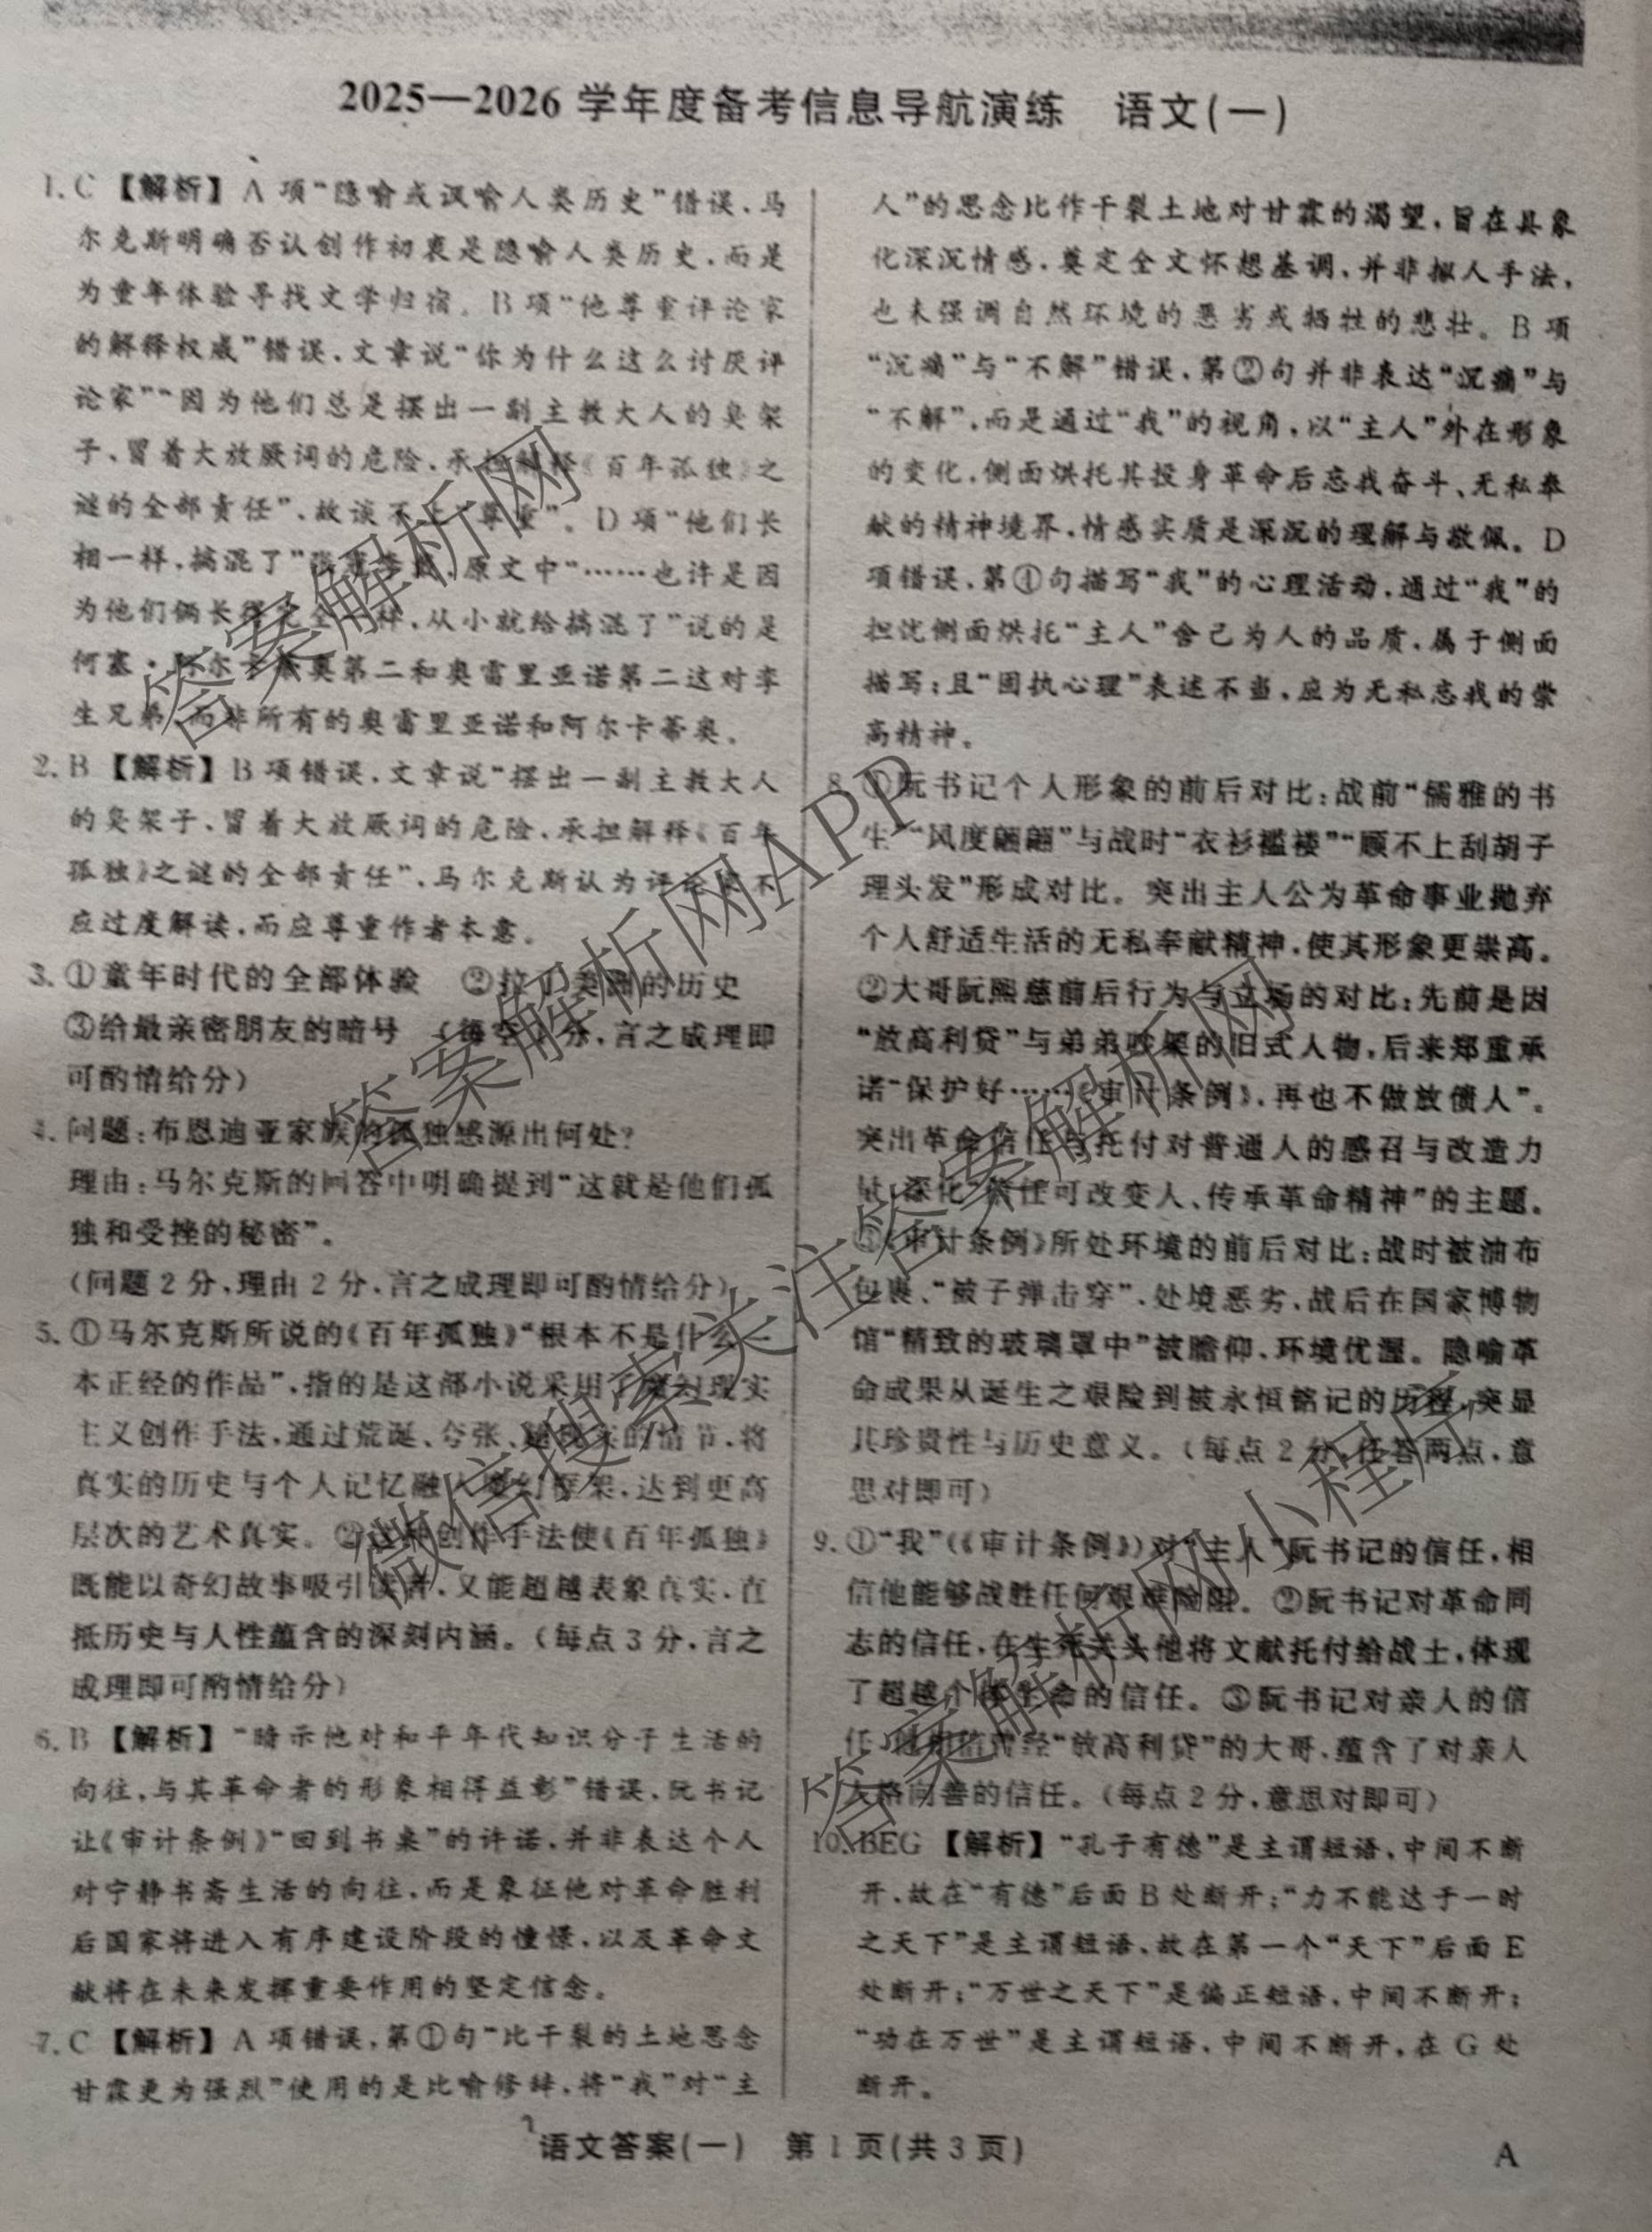 2025—2026 学年度备考信息导航演练 语文(一)
1. C 【解析】 A 项“隐喻或讽喻人类历史”错误,马
尔克斯明确否认创作初衷是隐喻人类历史,而是
为童年体验寻找文学归宿。B 项“他尊重评论家
的解释权威”错误,文章说“你为什么这么讨厌评
论家”“因为他们总是摆出一副主教大人的臭架
子、冒着大放厥词的危险,承担解释《百年孤独》之
谜的全部责任”,故谈不上“尊重”。D 项“他们长
相一样,搞混了”张冠李戴,原文中“……也许是因
为他们俩长得完全一样,从小就给搞混了”说的是
何塞·阿尔卡蒂奥第二和奥雷里亚诺第二这对孪
生兄弟,而非所有的奥雷里亚诺和阿尔卡蒂奥。
2. B 【解析】B 项错误,文章说“摆出一副主教大人
的臭架子、冒着大放厥词的危险,承担解释《百年
孤独》之谜的全部责任”,马尔克斯认为评论家不
应过度解读,而应尊重作者本意。
3. ①童年时代的全部体验 ②拉丁美洲的历史
③给最亲密朋友的暗号 (每空1分,言之成理即
可酌情给分)
4. 问题:布恩迪亚家族的孤独感源出何处?
理由:马尔克斯的回答中明确提到“这就是他们孤
独和受挫的秘密”。
(问题 2 分,理由 2 分,言之成理即可酌情给分)
5. ①马尔克斯所说的《百年孤独》“根本不是什么一
本正经的作品”,指的是这部小说采用了魔幻现实
主义创作手法,通过荒诞、夸张、超现实的情节,将
真实的历史与个人记忆融入魔幻框架,达到更高
层次的艺术真实。②这种创作手法使《百年孤独》
既能以奇幻故事吸引读者,又能超越表象真实,直
抵历史与人性蕴含的深刻内涵。(每点 3 分,言之
成理即可酌情给分)
6. B 【解析】 “暗示他对和平年代知识分子生活的
向往,与其革命者的形象相得益彰”错误,阮书记
让《审计条例》“回到书桌”的许诺,并非表达个人
对宁静书斋生活的向往,而是象征他对革命胜利
后国家将进入有序建设阶段的憧憬,以及革命文
献将在未来发挥重要作用的坚定信念。
7. C 【解析】 A 项错误,第①句“比干裂的土地思念
甘霖更为强烈”使用的是比喻修辞,将“我”对“主
人”的思念比作干裂土地对甘霖的渴望,旨在具象
化深沉情感,奠定全文怀想基调,并非拟人手法,
也未强调自然环境的恶劣或牺牲的悲壮。B 项
“沉痛”与“不解”错误,第②句并非表达“沉痛”与
“不解”,而是通过“我”的视角,以“主人”外在形象
的变化,侧面烘托其投身革命后忘我奋斗、无私奉
献的精神境界,情感实质是深沉的理解与敬佩。D
项错误,第④句描写“我”的心理活动,通过“我”的
担忧侧面烘托“主人”舍己为人的品质,属于侧面
描写;且“固执心理”表述不当,应为无私忘我的崇
高精神。
8. ①阮书记个人形象的前后对比:战前“儒雅的书
生”“风度翩翩”与战时“衣衫褴褛”“顾不上刮胡子
理头发”形成对比。突出主人公为革命事业抛弃
个人舒适生活的无私奉献精神,使其形象更崇高。
②大哥阮熙慈前后行为与立场的对比:先前是因
“放高利贷”与弟弟吵架的旧式人物,后来郑重承
诺“保护好……《审计条例》,再也不做放债人”。
突出革命信任与托付对普通人的感召与改造力
量,深化“信任可改变人、传承革命精神”的主题。
③《审计条例》所处环境的前后对比:战时被油布
包裹、“被子弹击穿”,处境恶劣,战后在国家博物
馆“精致的玻璃罩中”被瞻仰,环境优渥。隐喻革
命成果从诞生之艰险到被永恒铭记的历程,突显
其珍贵性与历史意义。(每点 2 分,任答两点,意
思对即可)
9. ①“我”(《审计条例》)对“主人”阮书记的信任,相
信他能够战胜任何艰难险阻。②阮书记对革命同
志的信任,在生死关头他将文献托付给战士,体现
了超越个体生命的信任。③阮书记对亲人的信
任,他相信曾经“放高利贷”的大哥,蕴含了对亲人
人格向善的信任。(每点 2 分,意思对即可)
10. BEG 【解析】“孔子有德”是主谓短语,中间不断
开,故在“有德”后面 B 处断开;“力不能达于一时
之天下”是主谓短语,故在第一个“天下”后面 E
处断开;“万世之天下”是偏正短语,中间不断开;
“功在万世”是主谓短语,中间不断开,在 G 处
断开。
语文答案(一) 第 1 页(共 3 页)
A
答案解析网
答案解析网APP
微信搜索关注答案解析网
答案解析网小程序